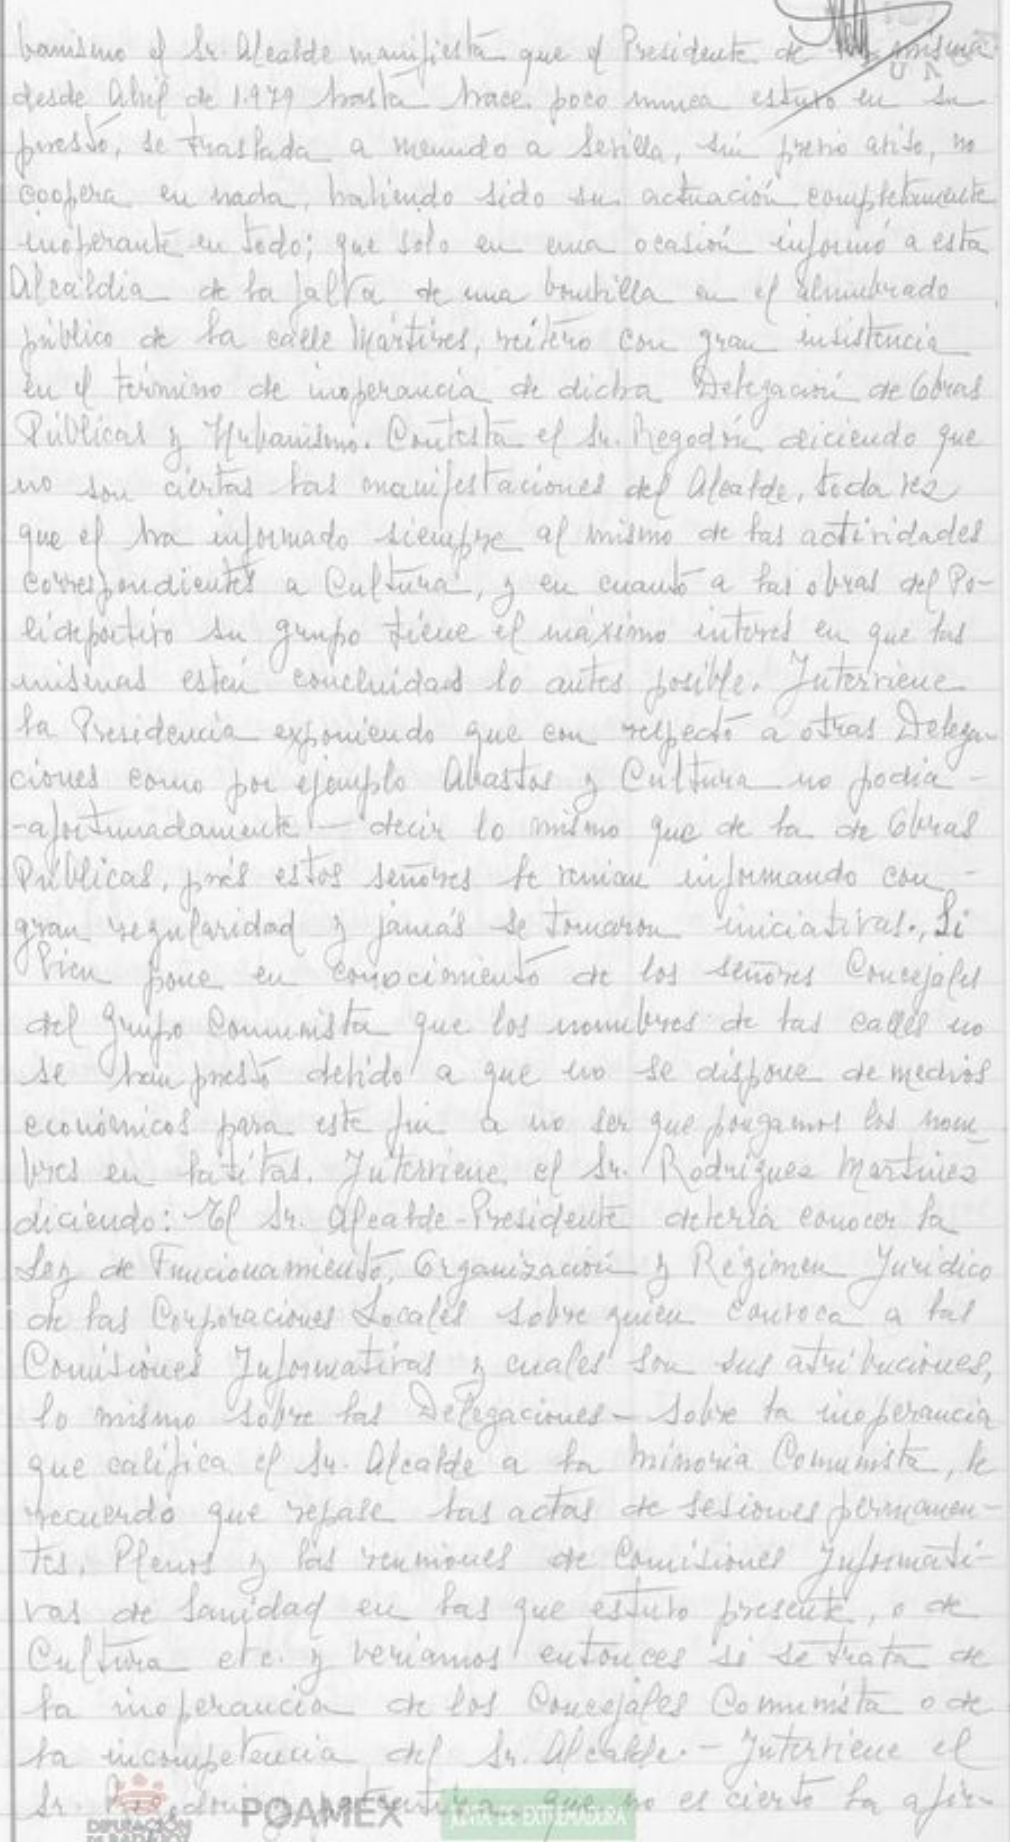 banismo el Sr. Alcalde manifiesta que el Presidente de la misma
desde Abril de 1.979 hasta hace poco nunca estuvo en su
puesto, se traslada a menudo a Sevilla, sin previo aviso, no
coopera en nada, habiendo sido su actuación completamente
inoperante en todo; que solo en una ocasión informó a esta
Alcaldia de la falta de una bombilla en el alumbrado
público de la calle Martires, reitero con gran insistencia
en el termino de inoperancia de dicha Delegación de Obras
Públicas y Urbanismo. Contesta el Sr. Regodón diciendo que
no son ciertas las manifestaciones del Alcalde, toda vez
que el ha informado siempre al mismo de las actividades
correspondientes a Cultura, y en cuanto a las obras del Po-
lideportivo su grupo tiene el máximo interes en que las
mismas esten concluidas lo antes posible. Interviene
la Presidencia exponiendo que con respecto a otras Delega-
ciones como por ejemplo Abastos y Cultura no podia -
-afortunadamente- decir lo mismo que de la de Obras
Públicas, pués estos señores le venian informando con -
gran regularidad y jamás se tomaron iniciativas., Si
bien pone en conocimiento de los señores Concejales
del Grupo Comunista que los nombres de las calles no
se han puesto debido a que no se dispone de medios
económicos para este fin a no ser que pongamos los nom-
bres en latitas. Interviene el Sr. Rodriguez Martinez
diciendo: El Sr. Alcalde-Presidente deberia conocer la
Ley de Funcionamiento, Organización y Régimen Juridico
de las Corporaciones Locales sobre quien convoca a las
Comisiones Informativas y cuales son sus atribuciones,
lo mismo sobre las Delegaciones - Sobre la inoperancia
que califica el Sr. Alcalde a la minoria Comunista, le
recuerdo que repase las actas de sesiones permanen-
tes, Plenos y las reuniones de Comisiones Informati-
vas de Sanidad en las que estuvo presente, o de
Cultura etc. y veriamos entonces si se trata de
la inoperancia de los Concejales Comunista o de
la incompetencia del Sr. Alcalde. - Interviene el
Sr. que no es cierto la afir-
DIPUTACIÓN DE BADAJOZ POAMEX JUNTA DE EXTREMADURA